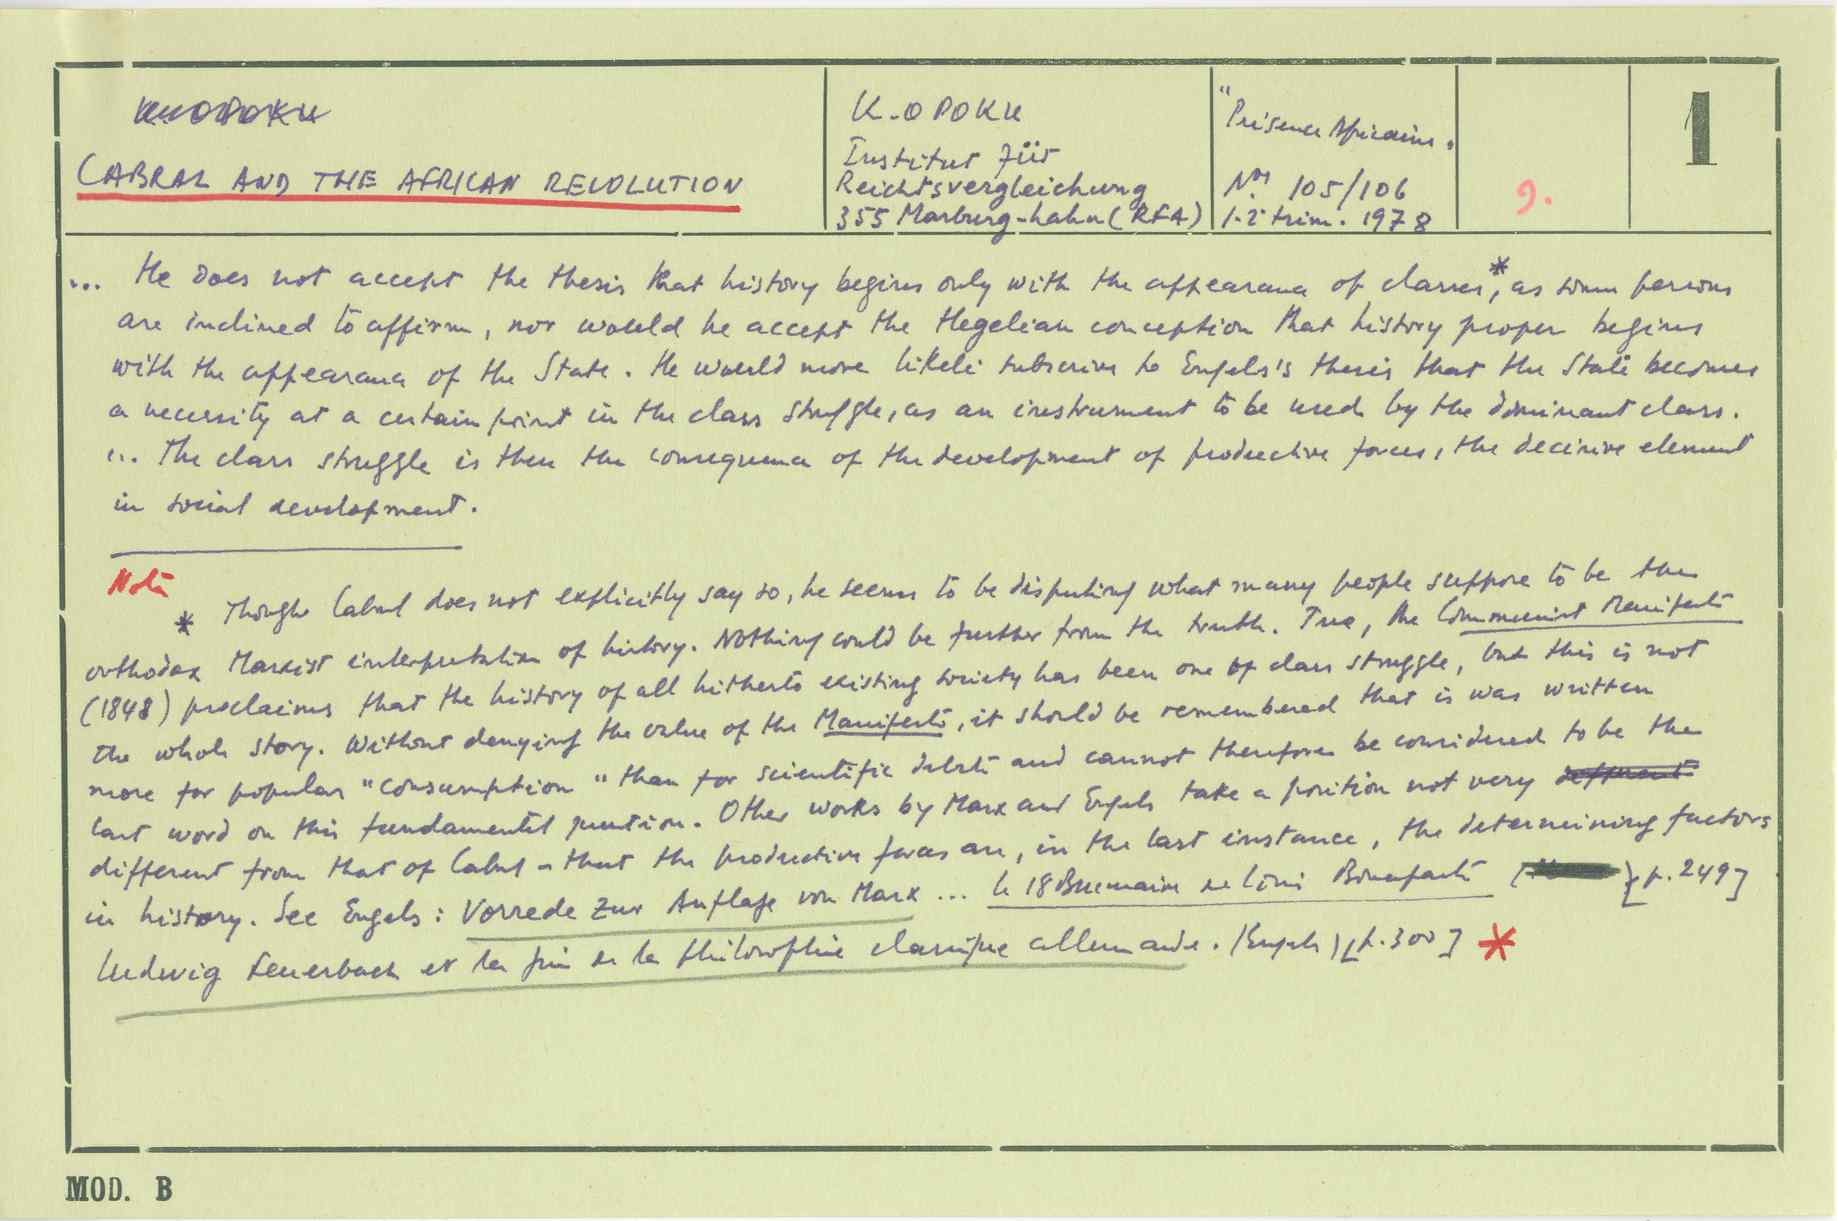 K. OPOKU
CABRAL AND THE AFRICAN REVOLUTION
K. OPOKU
Institut für
Reichtsvergleichung
355 Marburg-Lahn (RFA)
"Présence Africaine.
Nos 105/106
1-2 trim. 1978
9.
1
... He does not accept the thesis that history begins only with the appearance of classes*, as some persons
are inclined to affirm, nor would he accept the Hegelian conception that history proper begins
with the appearance of the State. He would more likeli subscrive to Engels's thesis that the State becomes
a necessity at a certain point in the class struggle, as an instrument to be used by the dominant class.
... The class struggle is then the consequence of the development of productive forces, the decisive element
in social development.
Note
* Though Cabral does not explicitly say so, he seems to be disputing what many people suppose to be the
orthodox Marxist interpretation of history. Nothing could be further from the truth. True, the Communist Manifesto
(1848) proclaims that the history of all hitherto existing society has been one of class struggle, but this is not
the whole story. Without denying the value of the Manifesto, it should be remembered that is was written
more for popular "consumption" than for scientific debate and cannot therefore be considered to be the
last word on this fundamental question. Other works by Marx and Engels take a position not very
different from that of Cabral - that the productive forces are, in the last instance, the determining factors
in history. See Engels: Vorrede zur Auflage von Marx ... le 18 Brumaire de Louis Bonaparte [p. 249]
Ludwig Feuerbach et la fin de la philosophie classique allemande. (Engels) [p. 300] *
MOD. B